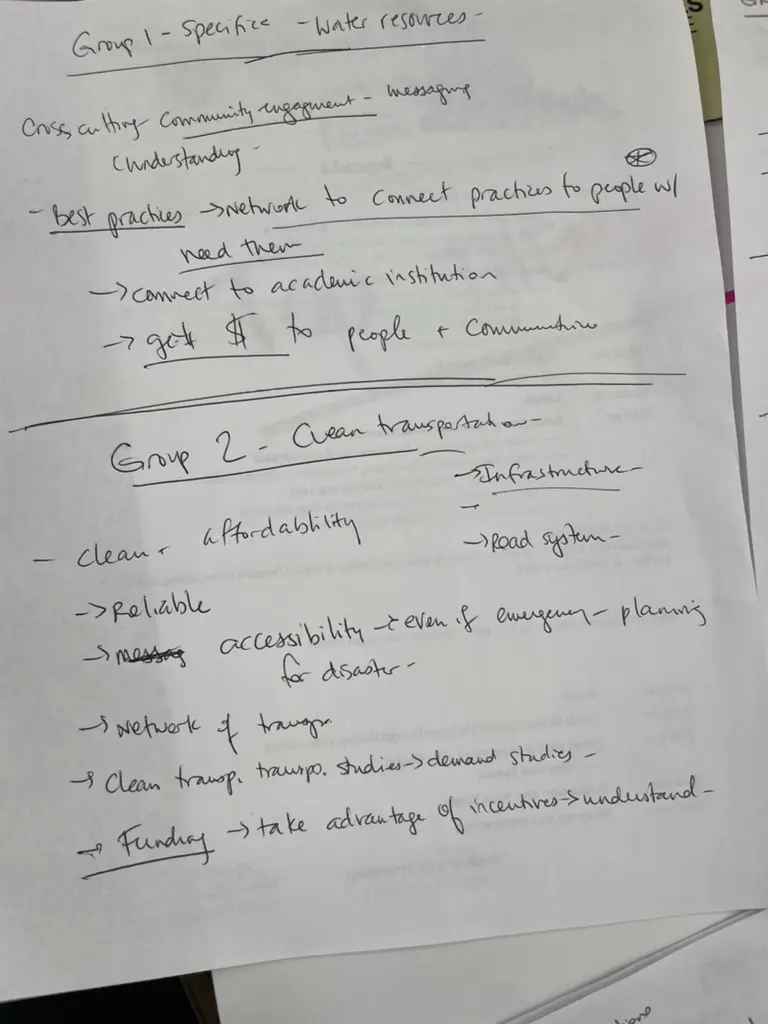 Group 1 - Specifice - Water resources -
Cross cutting Community engagement - messaging
(Understanding -
- best practices → Network to connect practices to people w/
need them
→ connect to academic institution
→ get $ to people + Communities
Group 2 - Clean transportation -
→ Infrastructure -
→ Road system -
- Clean + affordability
→ Reliable
→ accessibility → even if emergency - planning
for disaster -
→ Network of transp.
→ Clean transp. transpo. studies → demand studies -
→ Funding → take advantage of incentives → understand -